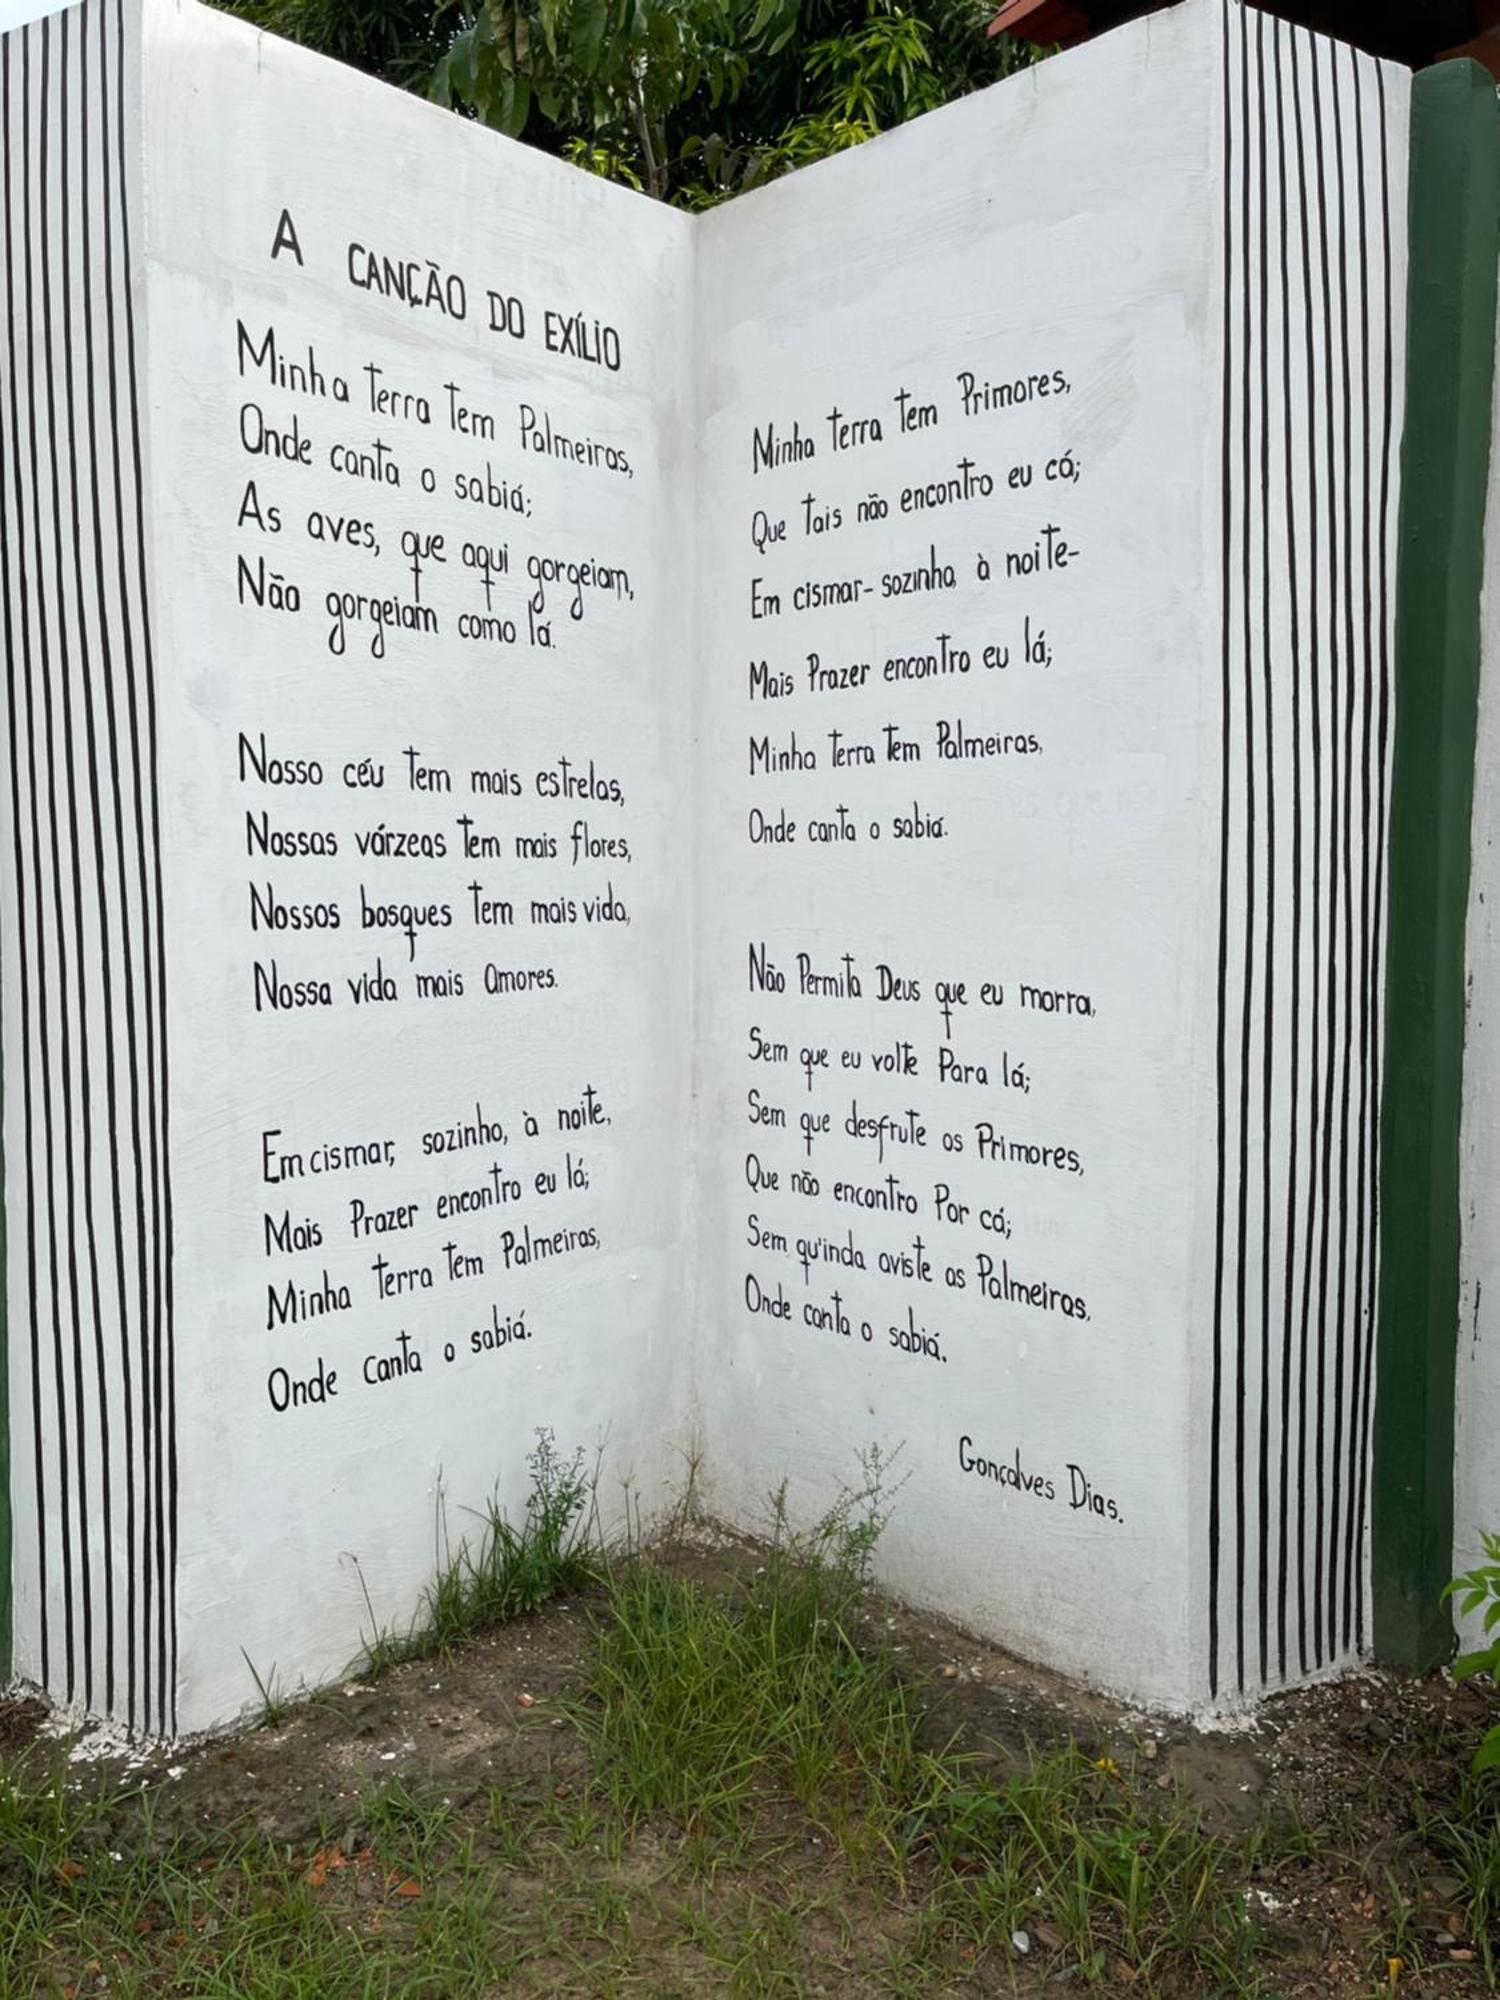 A CANÇÃO DO EXÍLIO
Minha terra tem Palmeiras,
Onde canta o sabiá;
As aves, que aqui gorgeiam,
Não gorgeiam como lá.
Nosso céu tem mais estrelas,
Nossas várzeas tem mais flores,
Nossos bosques tem mais vida,
Nossa vida mais Amores.
Em cismar, sozinho, à noite,
Mais Prazer encontro eu lá;
Minha terra tem Palmeiras,
Onde canta o sabiá.
Minha terra tem Primores,
Que tais não encontro eu cá;
Em cismar-sozinho, à noite-
Mais Prazer encontro eu lá;
Minha terra tem Palmeiras,
Onde canta o sabiá.
Não Permita Deus que eu morra,
Sem que eu volte Para lá;
Sem que desfrute os Primores,
Que não encontro Por cá;
Sem qu'inda aviste as Palmeiras,
Onde canta o sabiá.
Gonçalves Dias.